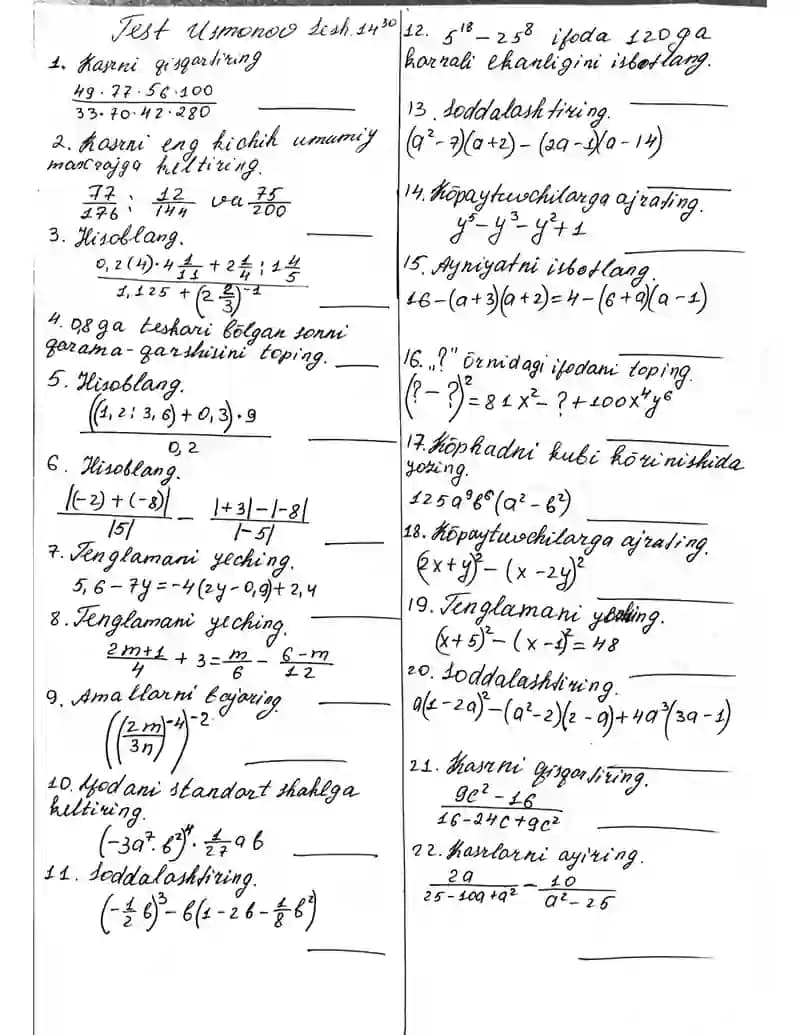 Test Usmonov Sesh. 14³⁰
1. Kasrni qisqartiring
(49·77·56·100)/(33·70·42·280) ____
2. Kasrni eng kichik umumiy
maxrajga keltiring.
77/176; 12/144 va 75/200
3. Hisoblang. ____
(0,2(4)·4 1/11 + 2 1/4 : 1 4/5)/(1,125 + (2 2/3)⁻¹) ____
4. 0,8 ga teskari bo̅lgan sonni
qarama-qarshisini toping. ____
5. Hisoblang.
(((1,2 : 3,6) + 0,3)·9)/0,2 ____
6. Hisoblang.
|(-2) + (-8)|/|5| - (|+3| - |-8|)/|-5| ____
7. Tenglamani yeching.
5,6 - 7y = -4(2y - 0,9) + 2,4
8. Tenglamani yeching. ____
(2m+1)/4 + 3 = m/6 - (6-m)/12
9. Amallarni bajaring ____
(((2m)/(3n))⁻⁴)⁻² ____
10. Ifodani standart shaklga
keltiring.
(-3a⁷·b²)⁴ · 1/27 ab ____
11. Soddalashtiring.
(-1/2 b)³ - b(1 - 2b - 1/8 b²)
____
12. 5¹⁸ - 25⁸ ifoda 120 ga
karrali ekanligini isbotlang.
13. Soddalashtiring. ____
(a² - 7)(a+2) - (2a-1)(a-14)
14. Ko̅paytuvchilarga ajrating. ____
y⁵ - y³ - y² + 1
15. Ayniyatni isbotlang. ____
16 - (a+3)(a+2) = 4 - (6+a)(a-1)
16. „?” o̅rnidagi ifodani toping. ____
(? - ?)² = 81x² - ? + 100x⁴y⁶
17. Ko̅phadni kubi ko̅rinishida ____
yozing.
125a⁹b⁶(a² - b²) ____
18. Ko̅paytuvchilarga ajrating.
(2x+y)² - (x-2y)²
19. Tenglamani yeching. ____
(x+5)² - (x-1)² = 48
20. Soddalashtiring. ____
a(1-2a)² - (a²-2)(2-a) + 4a³(3a-1)
21. Kasrni qisqartiring. ____
(9c² - 16)/(16 - 24c + 9c²) ____
22. Kasrlarni ayiring.
2a/(25 - 10a + a²) - 10/(a² - 25)
____